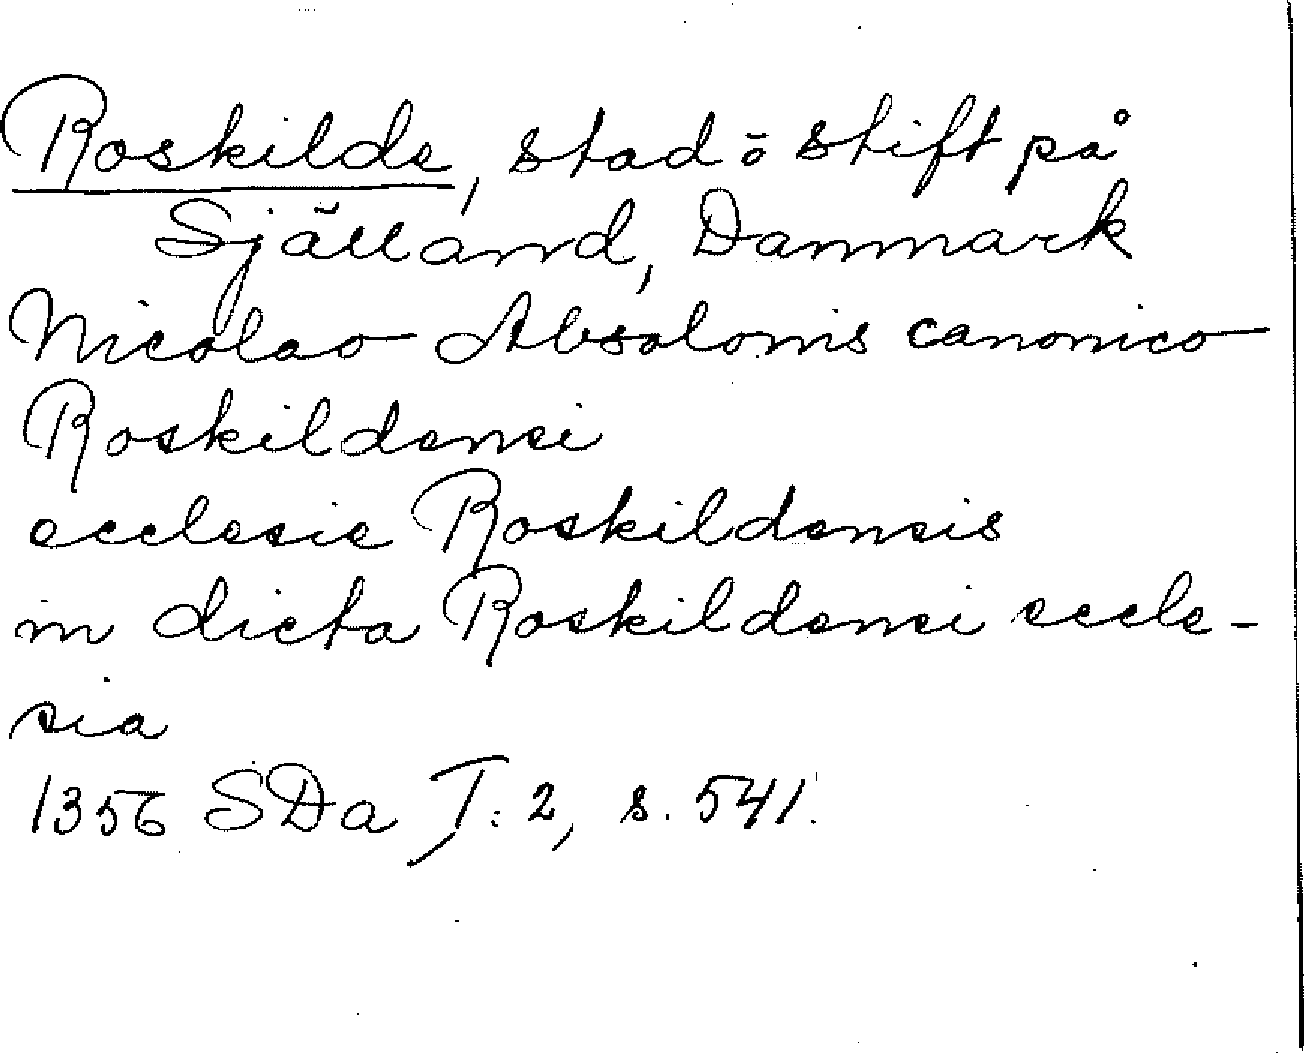 Roskilde, stad ō stift på
Själland, Danmark
Nicolao Absolonis canonico
Roskildensi
ecclesie Roskildensis
in dicta Roskildensi eccle-
sia
1356 SDa J: 2, s. 541.